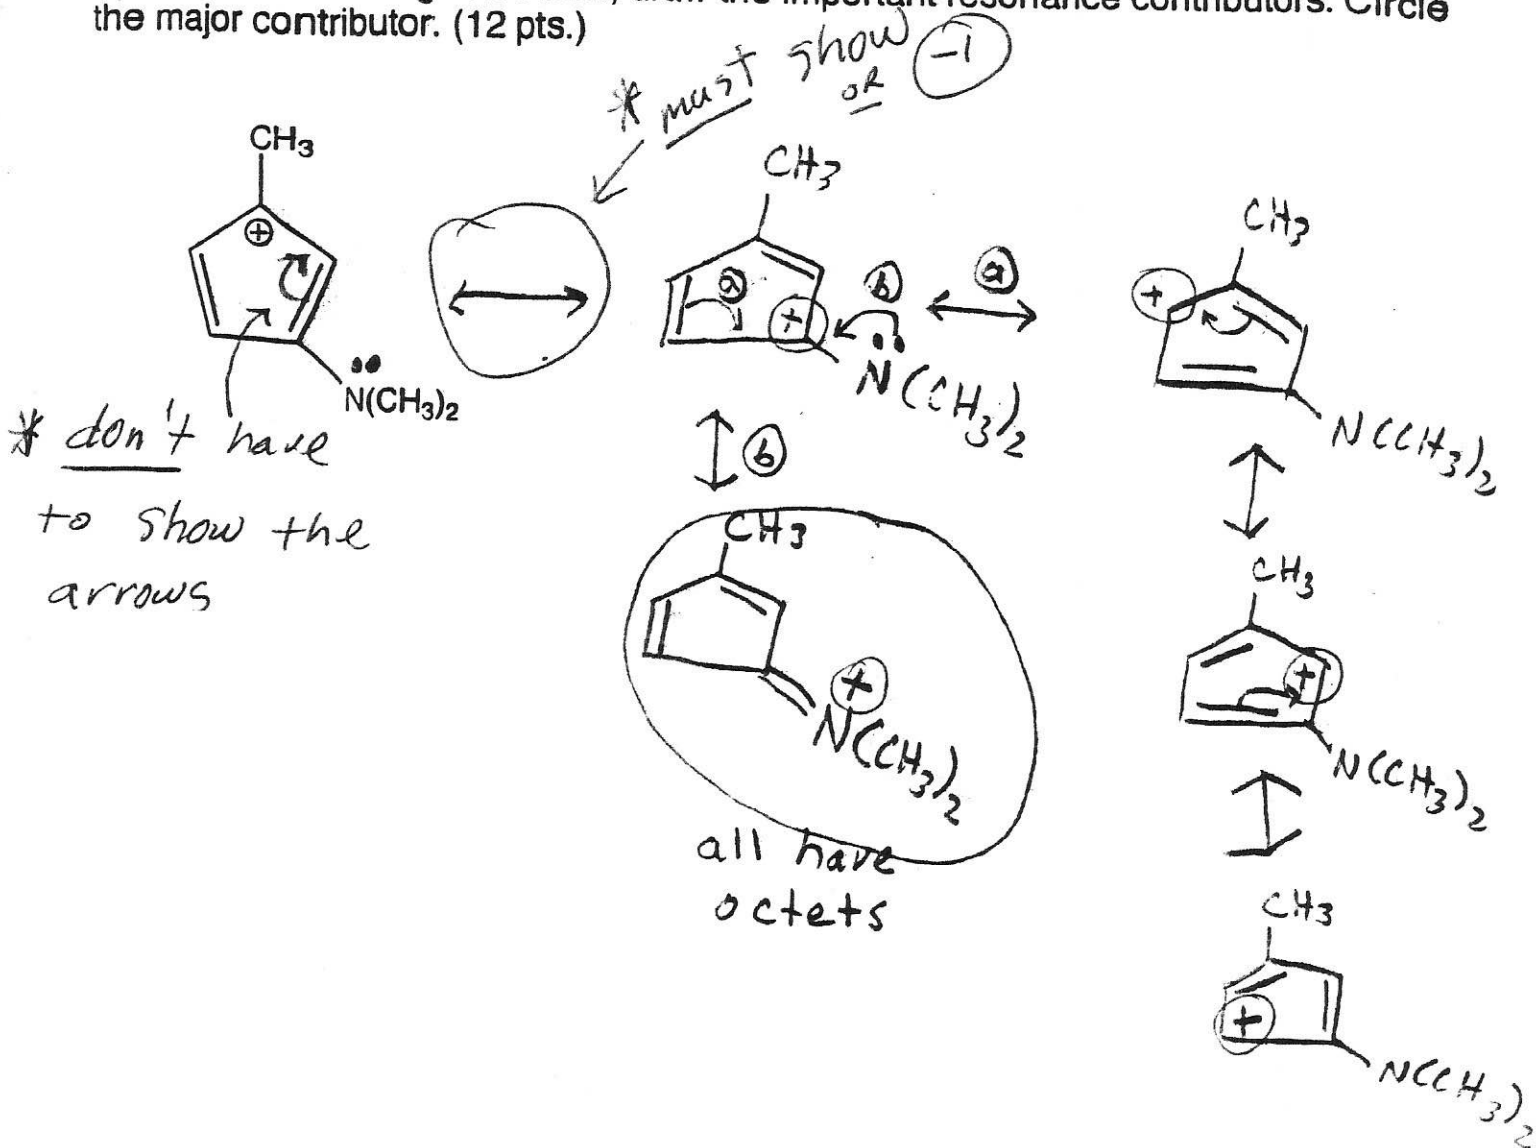 the important resonance contributors. Circle
the major contributor. (12 pts.)
* must show
OR -1
CH3
⊕
N(CH3)2
* don't have
to show the
arrows
CH3
a
+
b
N(CH3)2
a
CH3
+
N(CCH3)2
b
CH3
+
N(CCH3)2
all have
octets
CH3
+
N(CCH3)2
CH3
+
N(CCH3)2